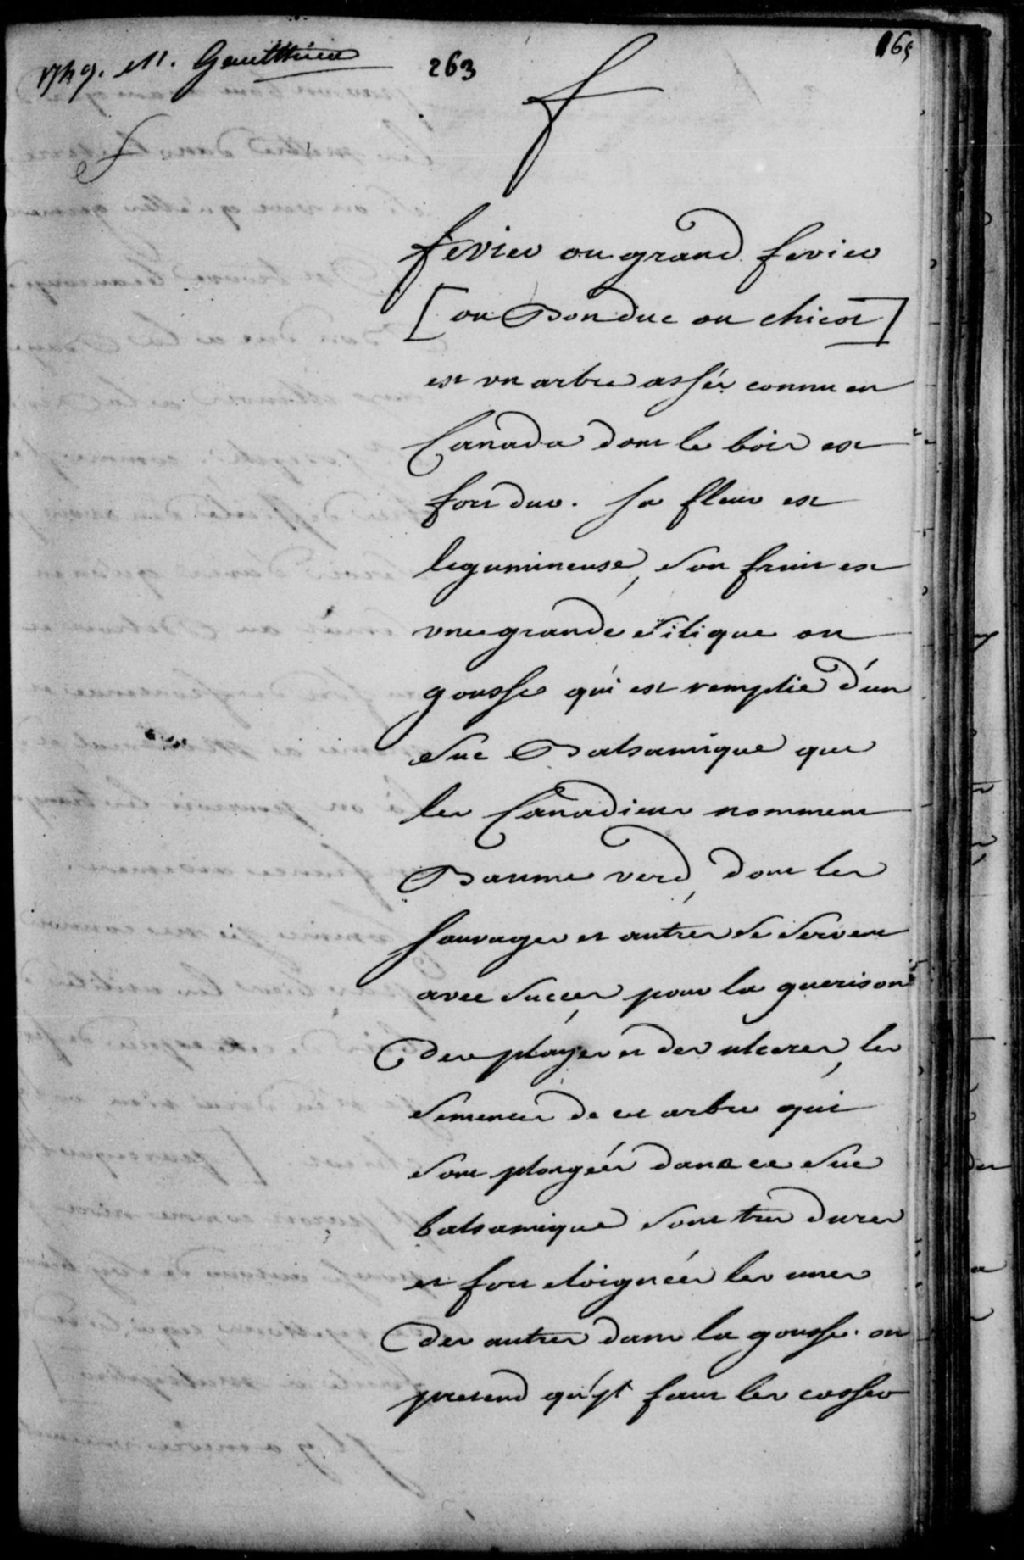 1749. M. Gaulthier
263
165
F
F
fevier ou grand fevier
[ou Bonduc ou chicot]
est un arbre assés connu en
Canada dont le bois est
fort dur. sa fleur est
legumineuse, son fruit est
une grande silique ou
gousse qui est remplie d'un
suc Balsamique que
les Canadiens nomment
Baume verd, dont les
sauvages et autres se servent
avec succes pour la guerison
des playes et des ulceres, les
semences de cet arbre qui
sont plongées dans ce suc
balsamique sont tres dures
et fort eloignées les unes
des autres dans la gousse. on
pretend qu'il faut les casser